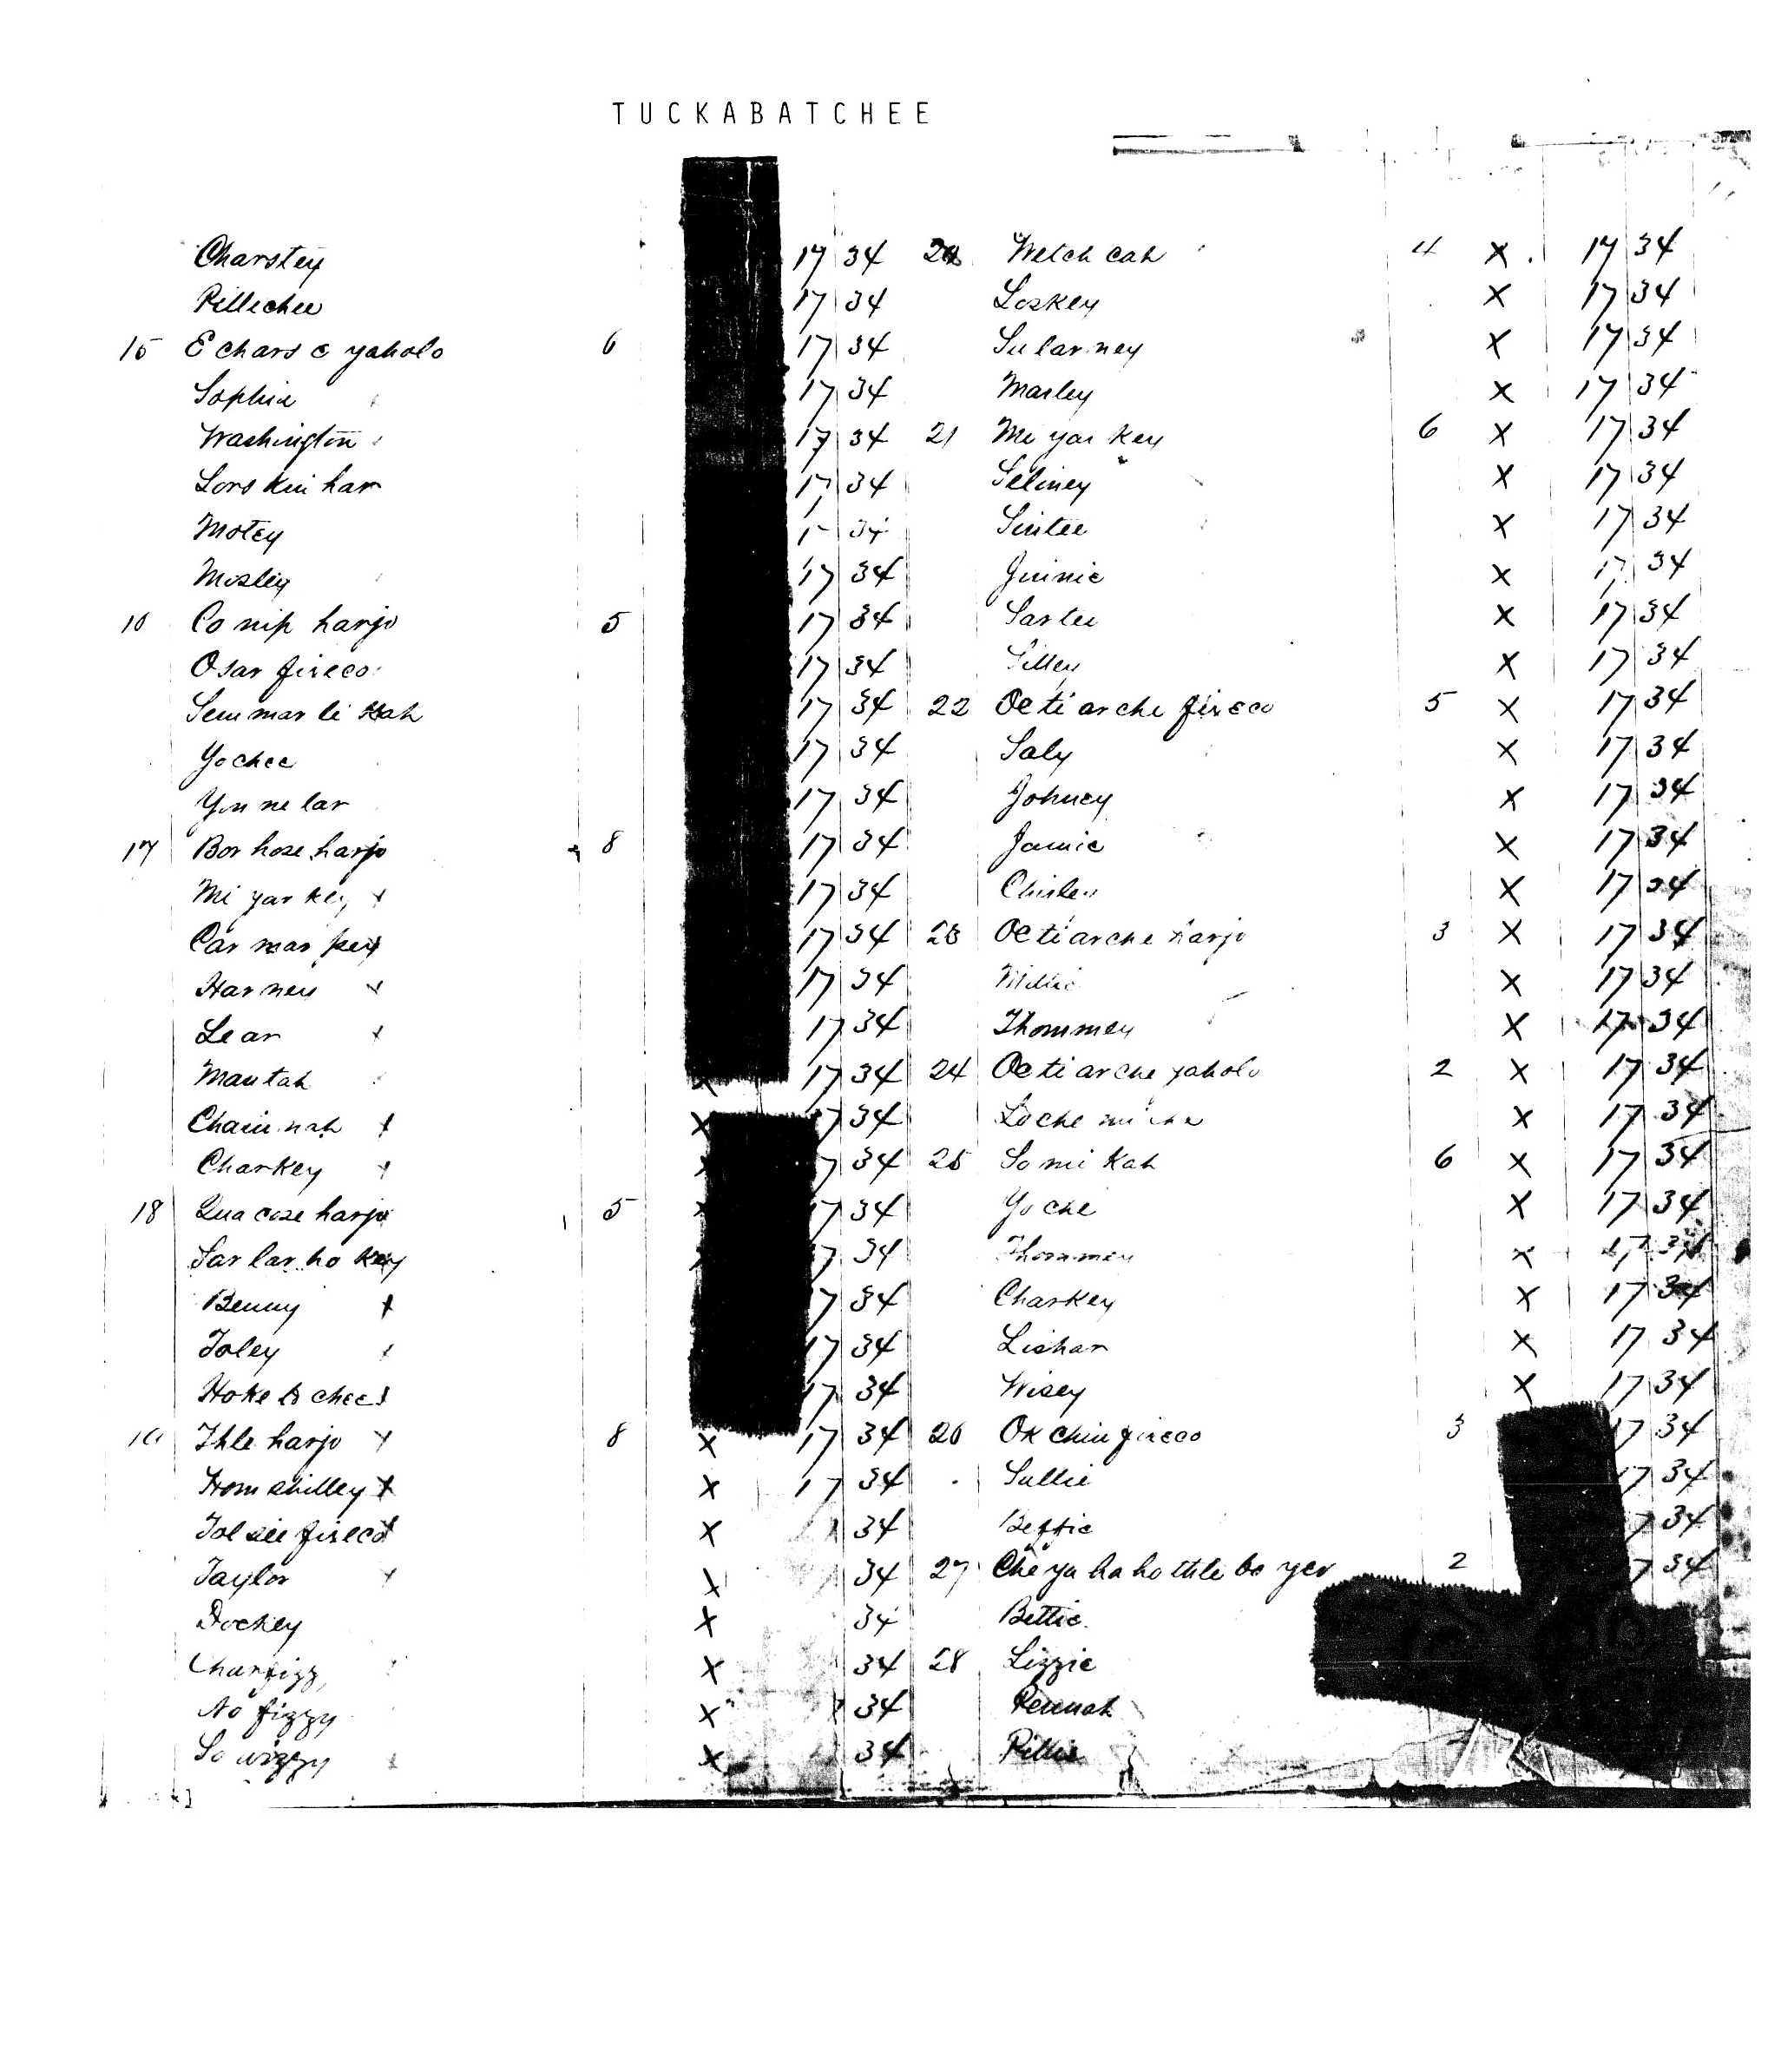 TUCKABATCHEE
Charstey 17 34
Pillechee 17 34
15 Echars e yaholo 6 17 34
Sophia 17 34
Washington 17 34
Lors kin har 17 34
Motey 34
Mosley 17 34
16 Co nip harjo 5 17 34
Osar fixeco 17 34
Sem mar li kah 17 34
Yochee 17 34
Yon ne lar 17 34
17 Bor hose harjo 8 17 34
Mi yar key x 17 34
Car mar pey 17 34
Harney x 17 34
Lear x 17 34
Mautah x 17 34
Chain nah x x 17 34
Charkey x 17 34
18 Qua cose harjo 5 17 34
Sar lar ho key 17 34
Benny x 17 34
Toley x 17 34
Hoke chee 17 34
19 Thle harjo x 8 x 17 34
Hom ahilley x x 17 34
Tol see fixeco x 34
Taylor x x 34
Dockey x 34
x 34
No fizzy x 34
So wizzy x 34
20 Wetch cah 4 x 17 34
Loskey x 17 34
Su lar ney x 17 34
Marley x 17 34
21 Mi yar key 6 x 17 34
Seliney x 17 34
Sintee x 17 34
Jinnie x 17 34
Sartee x 17 34
Silley x 17 34
22 Oc ti arche fixeco 5 x 17 34
Saly x 17 34
Johney x 17 34
Jamie x 17 34
x 17 34
23 Oc ti arche harjo 3 x 17 34
Millie x 17 34
Thommey x 17 34
24 Oc ti arche yaholo 2 x 17 34
Loche x 17 34
25 So mi kah 6 x 17 34
Yo che x 17 34
Thommey x 17 34
Charkey x 17 34
Lishar x 17 34
Wisey x 17 34
26 Ok chin fixeco 3 17 34
Sallie 17 34
Bettie 7 34
27 Che ya ha hothle bo yer 2 7 34
Bettie
28 Lizzie
Pennah
Pillie